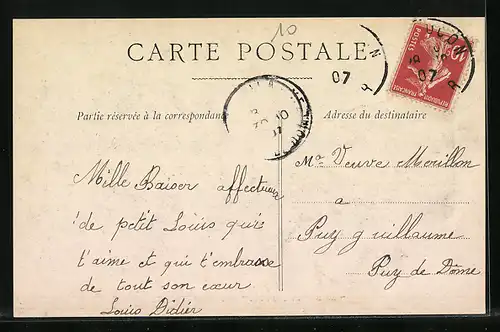 10
CARTE POSTALE
POSTES
10
REPUBLIQUE FRANÇAISE
07
07
Partie réservée à la correspondance
Adresse du destinataire
Mille Baiser affectueux
de petit Louis qui
t'aime et qui t'embrasse
de tout son cœur
Louis Didier
Me Veuve Morillon
a
Puy guillaume
Puy de Dôme